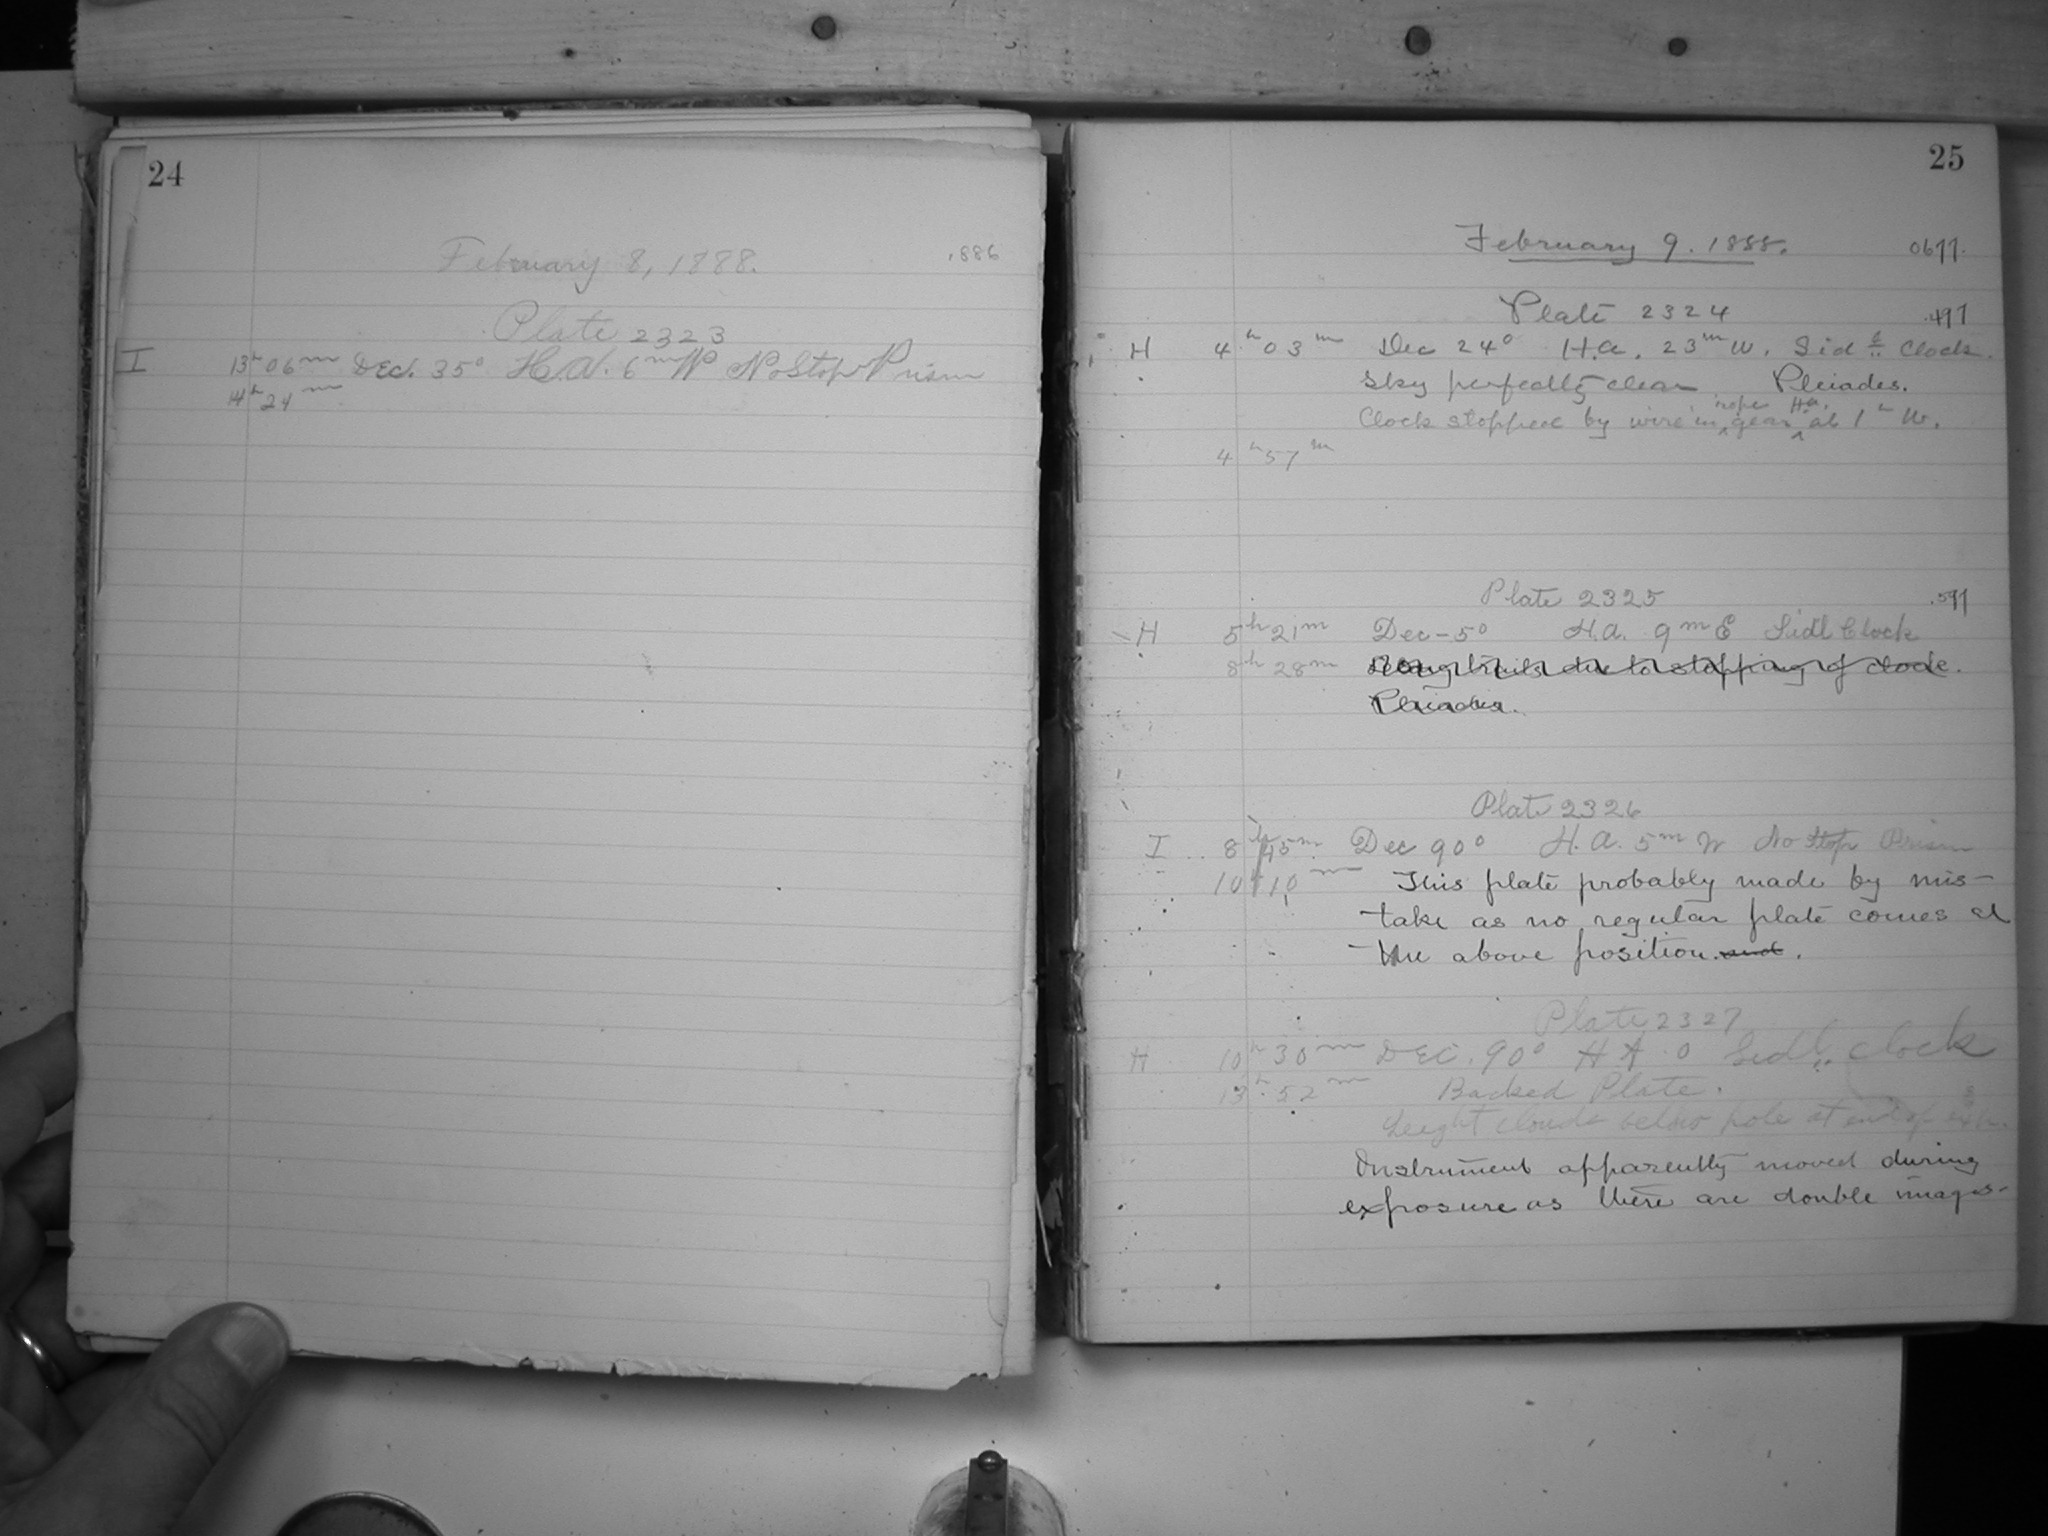 24
February 8, 1888. .886
Plate 2323
I 13h 06m Dec. 35° H.A. 6m W No Stop Prism
14h 24m
25
February 9. 1888. 0677.
Plate 2324 .497
H 4h 03m Dec 24° H.a. 23m W. Sid l Clock.
Sky perfectly clear Pleiades.
Clock stopped by wire in rope gear H.a. at 1h W.
4h 57m
Plate 2325 .597
H 5h 21m Dec -5° H.A. 9m E Sidl Clock
8h 28m trails due to stopping of clock.
Pleiades.
Plate 2326
I 8h 45m Dec 90° H.A. 5m W No Stop Prism
10h 10m This plate probably made by mis-
take as no regular plate comes at
the above position and.
Plate 2327
H 10h 30m DEC. 90° HA 0 Sidl. Clock
13h 52m Backed Plate.
Light clouds below pole at end of exp.
Instrument apparently moved during
exposure as there are double images.